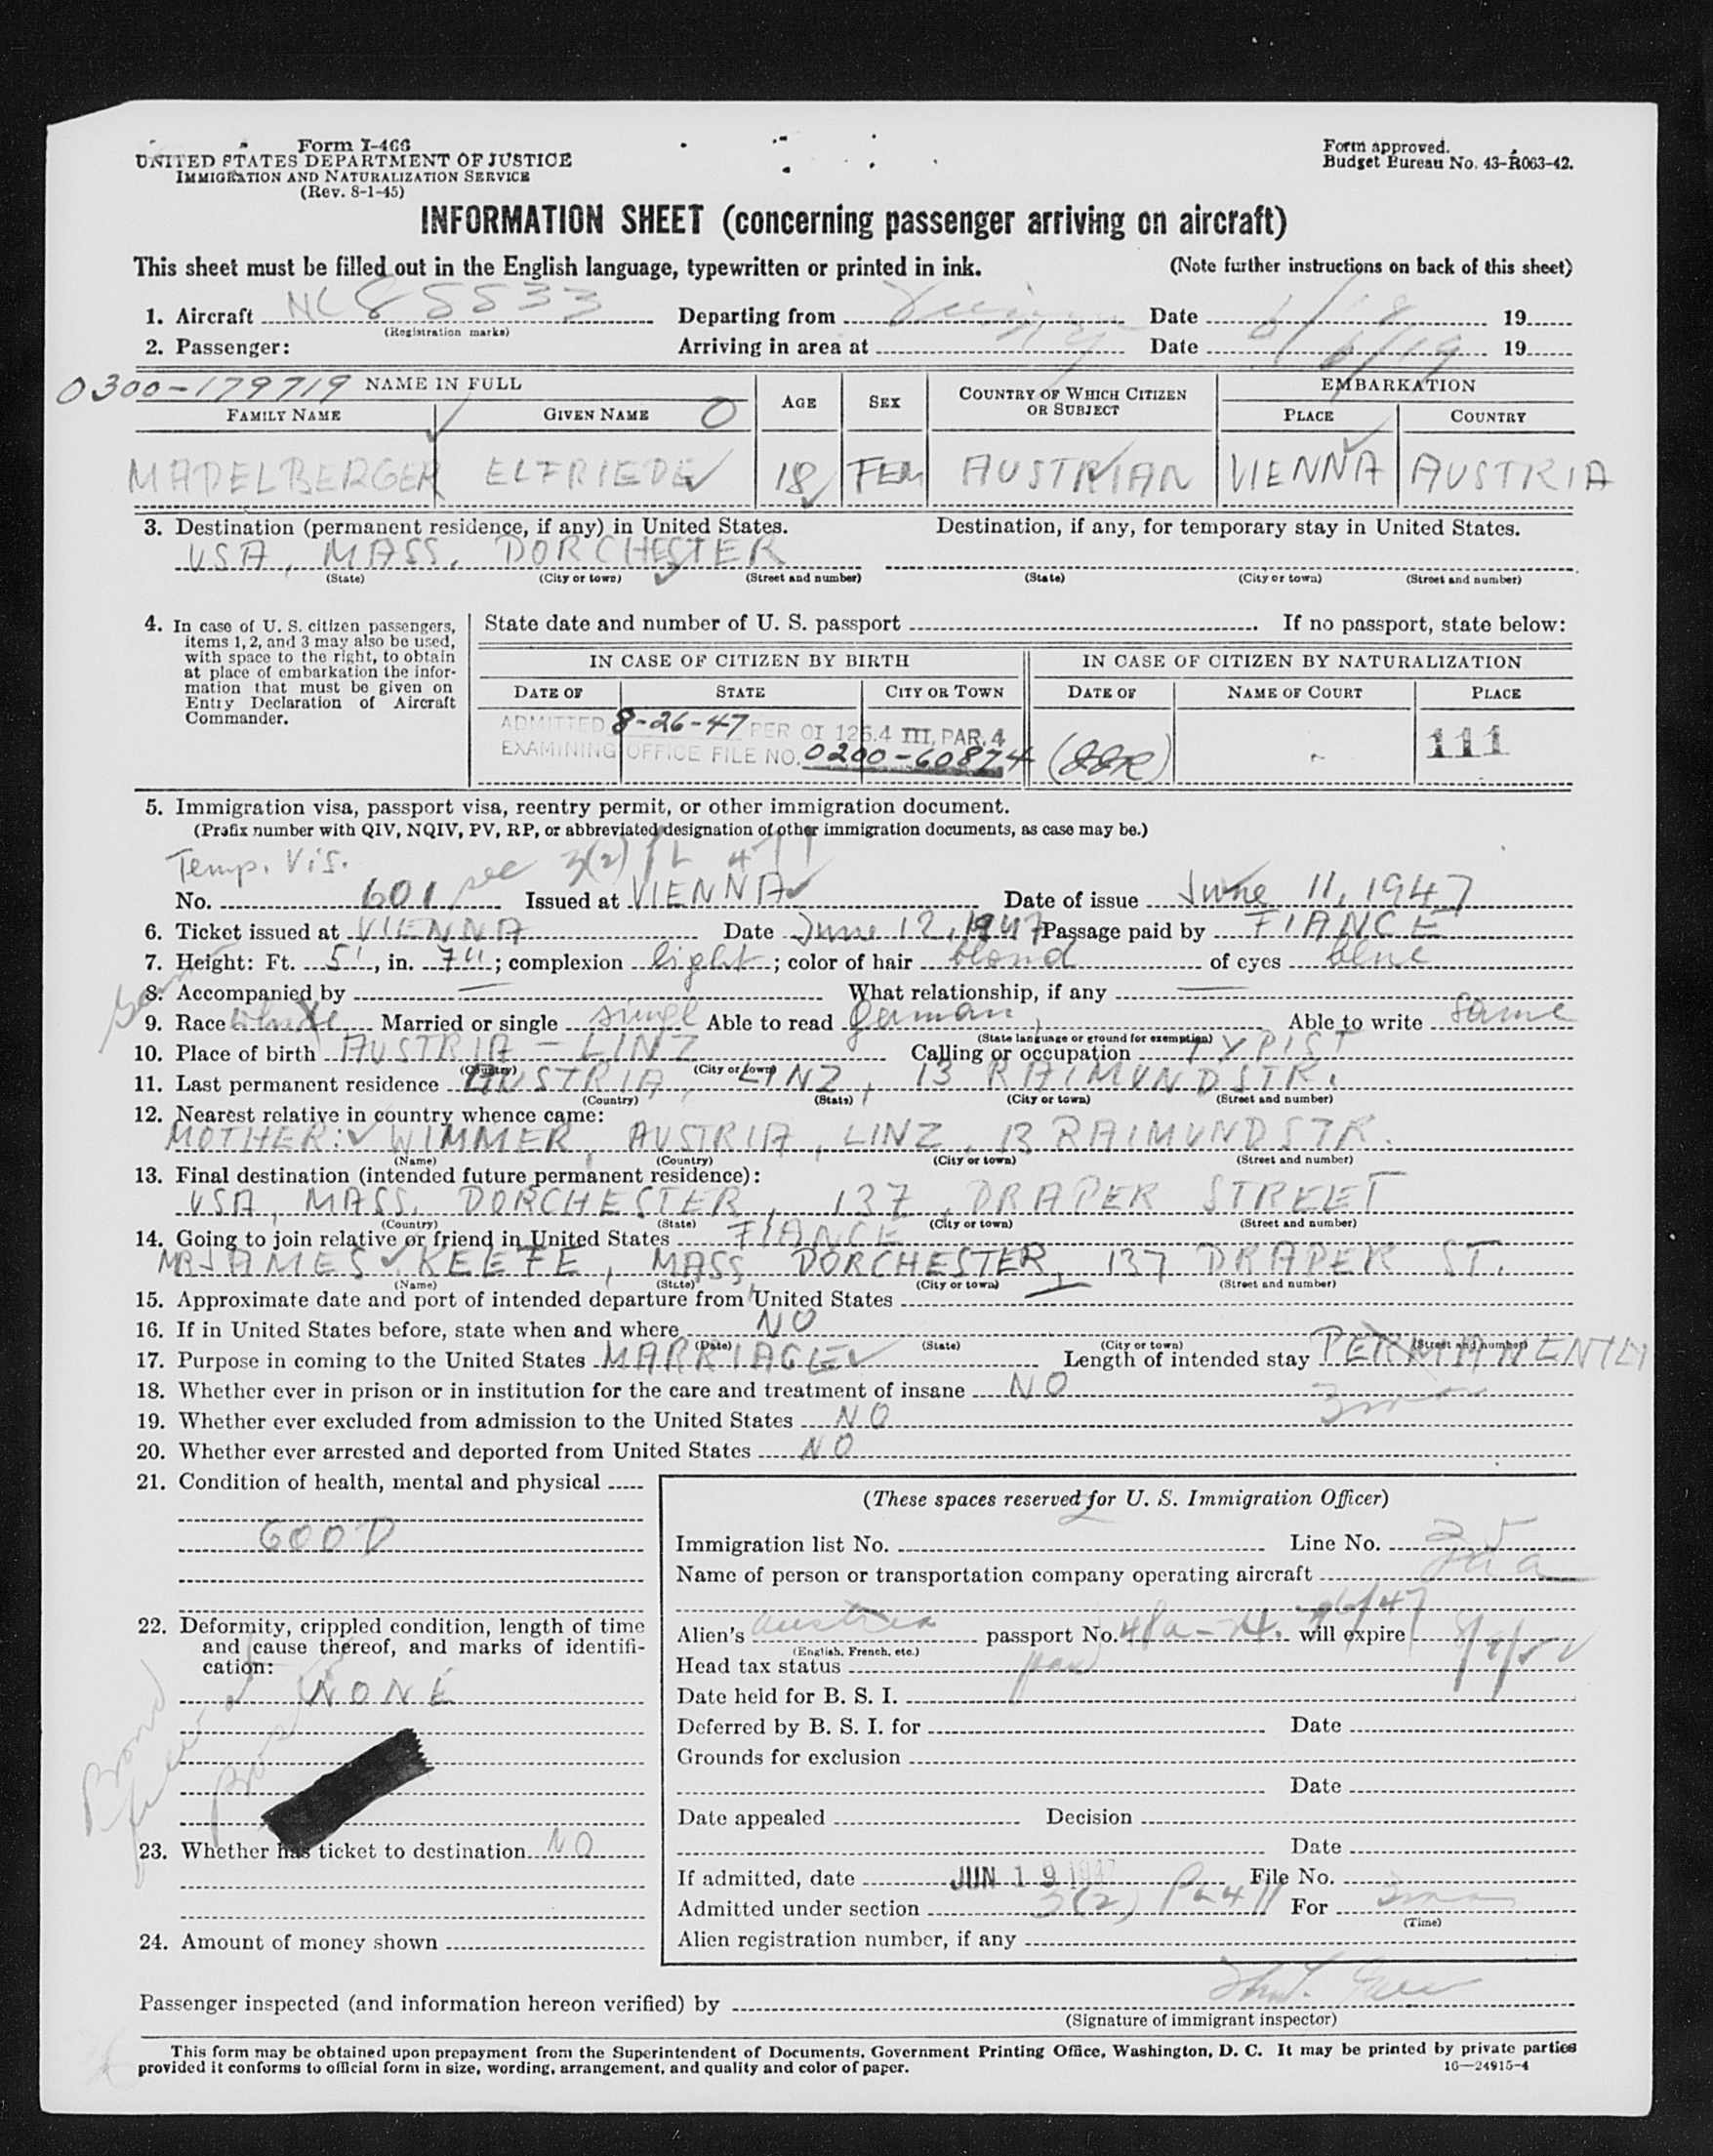 Form I-466
UNITED STATES DEPARTMENT OF JUSTICE
IMMIGRATION AND NATURALIZATION SERVICE
(Rev. 8-1-45)
Form approved.
Budget Bureau No. 43-R063-42.
INFORMATION SHEET (concerning passenger arriving on aircraft)
This sheet must be filled out in the English language, typewritten or printed in ink. (Note further instructions on back of this sheet)
1. Aircraft NC 85533 Departing from Vienna Date 6/18 19
(Registration marks)
2. Passenger: Arriving in area at NY Date 6/19 19
0300-179719 NAME IN FULL AGE SEX COUNTRY OF WHICH CITIZEN OR SUBJECT EMBARKATION
FAMILY NAME GIVEN NAME O PLACE COUNTRY
MADELBERGER ELFRIEDE 18 FEM AUSTRIAN VIENNA AUSTRIA
3. Destination (permanent residence, if any) in United States. Destination, if any, for temporary stay in United States.
USA, MASS. DORCHESTER
(State) (City or town) (Street and number) (State) (City or town) (Street and number)
4. In case of U. S. citizen passengers, items 1, 2, and 3 may also be used, with space to the right, to obtain at place of embarkation the information that must be given on Entry Declaration of Aircraft Commander.
State date and number of U. S. passport If no passport, state below:
IN CASE OF CITIZEN BY BIRTH IN CASE OF CITIZEN BY NATURALIZATION
DATE OF STATE CITY OR TOWN DATE OF NAME OF COURT PLACE
ADMITTED 8-26-47 PER OI 126.4 III, PAR. 4
EXAMINING OFFICE FILE NO. 0200-60874 111
5. Immigration visa, passport visa, reentry permit, or other immigration document.
(Prefix number with QIV, NQIV, PV, RP, or abbreviated designation of other immigration documents, as case may be.)
Temp. Vis. sec 3(2) PL 471
No. 601 Issued at VIENNA Date of issue June 11, 1947
6. Ticket issued at VIENNA Date June 12, 1947 Passage paid by FIANCE
7. Height: Ft. 5', in. 7"; complexion light; color of hair blond of eyes blue
8. Accompanied by — What relationship, if any —
9. Race white Married or single single Able to read German Able to write same
(State language or ground for exemption)
10. Place of birth AUSTRIA - LINZ Calling or occupation TYPIST
(Country) (City or town)
11. Last permanent residence AUSTRIA, LINZ, 13 RAIMUNDSTR.
(Country) (State) (City or town) (Street and number)
12. Nearest relative in country whence came:
MOTHER: WIMMER, AUSTRIA, LINZ, 13 RAIMUNDSTR.
(Name) (Country) (City or town) (Street and number)
13. Final destination (intended future permanent residence):
USA, MASS. DORCHESTER, 137, DRAPER STREET
(Country) (State) (City or town) (Street and number)
14. Going to join relative or friend in United States FIANCE
MR JAMES KEEFE, MASS, DORCHESTER, 137 DRAPER ST.
(Name) (State) (City or town) (Street and number)
15. Approximate date and port of intended departure from United States —
16. If in United States before, state when and where NO
(Date) (State) (City or town) (Street and number)
17. Purpose in coming to the United States MARRIAGE Length of intended stay PERMANENTLY
18. Whether ever in prison or in institution for the care and treatment of insane NO
19. Whether ever excluded from admission to the United States NO
20. Whether ever arrested and deported from United States NO
21. Condition of health, mental and physical
GOOD
22. Deformity, crippled condition, length of time and cause thereof, and marks of identification:
NONE
23. Whether has ticket to destination NO
24. Amount of money shown
(These spaces reserved for U. S. Immigration Officer)
Immigration list No. Line No. 35
Name of person or transportation company operating aircraft
Alien's Austria passport No. will expire
(English, French, etc.)
Head tax status paid
Date held for B. S. I.
Deferred by B. S. I. for Date
Grounds for exclusion
Date
Date appealed Decision
Date
If admitted, date JUN 19 1947 File No.
Admitted under section 3(2) PL 471 For
(Time)
Alien registration number, if any
Passenger inspected (and information hereon verified) by
(Signature of immigrant inspector)
This form may be obtained upon prepayment from the Superintendent of Documents, Government Printing Office, Washington, D. C. It may be printed by private parties
provided it conforms to official form in size, wording, arrangement, and quality and color of paper. 16—24915-4